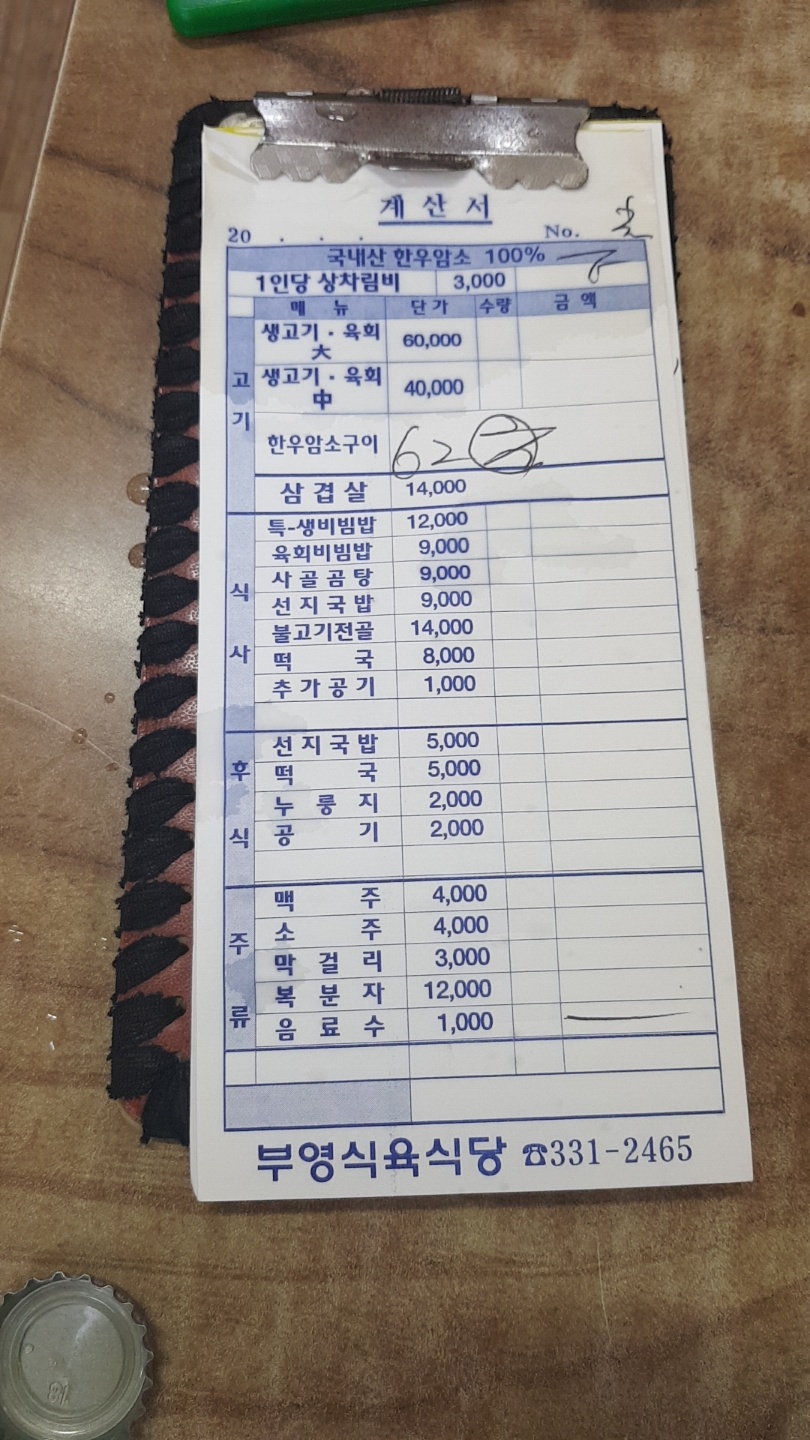 계산서
20 . . . No.
국내산 한우암소 100%
1인당 상차림비 3,000
메 뉴 단가 수량 금액
고기
생고기·육회 大 60,000
생고기·육회 中 40,000
한우암소구이 62
삼겹살 14,000
식사
특-생비빔밥 12,000
육회비빔밥 9,000
사골곰탕 9,000
선지국밥 9,000
불고기전골 14,000
떡국 8,000
추가공기 1,000
후식
선지국밥 5,000
떡국 5,000
누룽지 2,000
공기 2,000
주류
맥주 4,000
소주 4,000
막걸리 3,000
복분자 12,000
음료수 1,000
부영식육식당 ☎331-2465